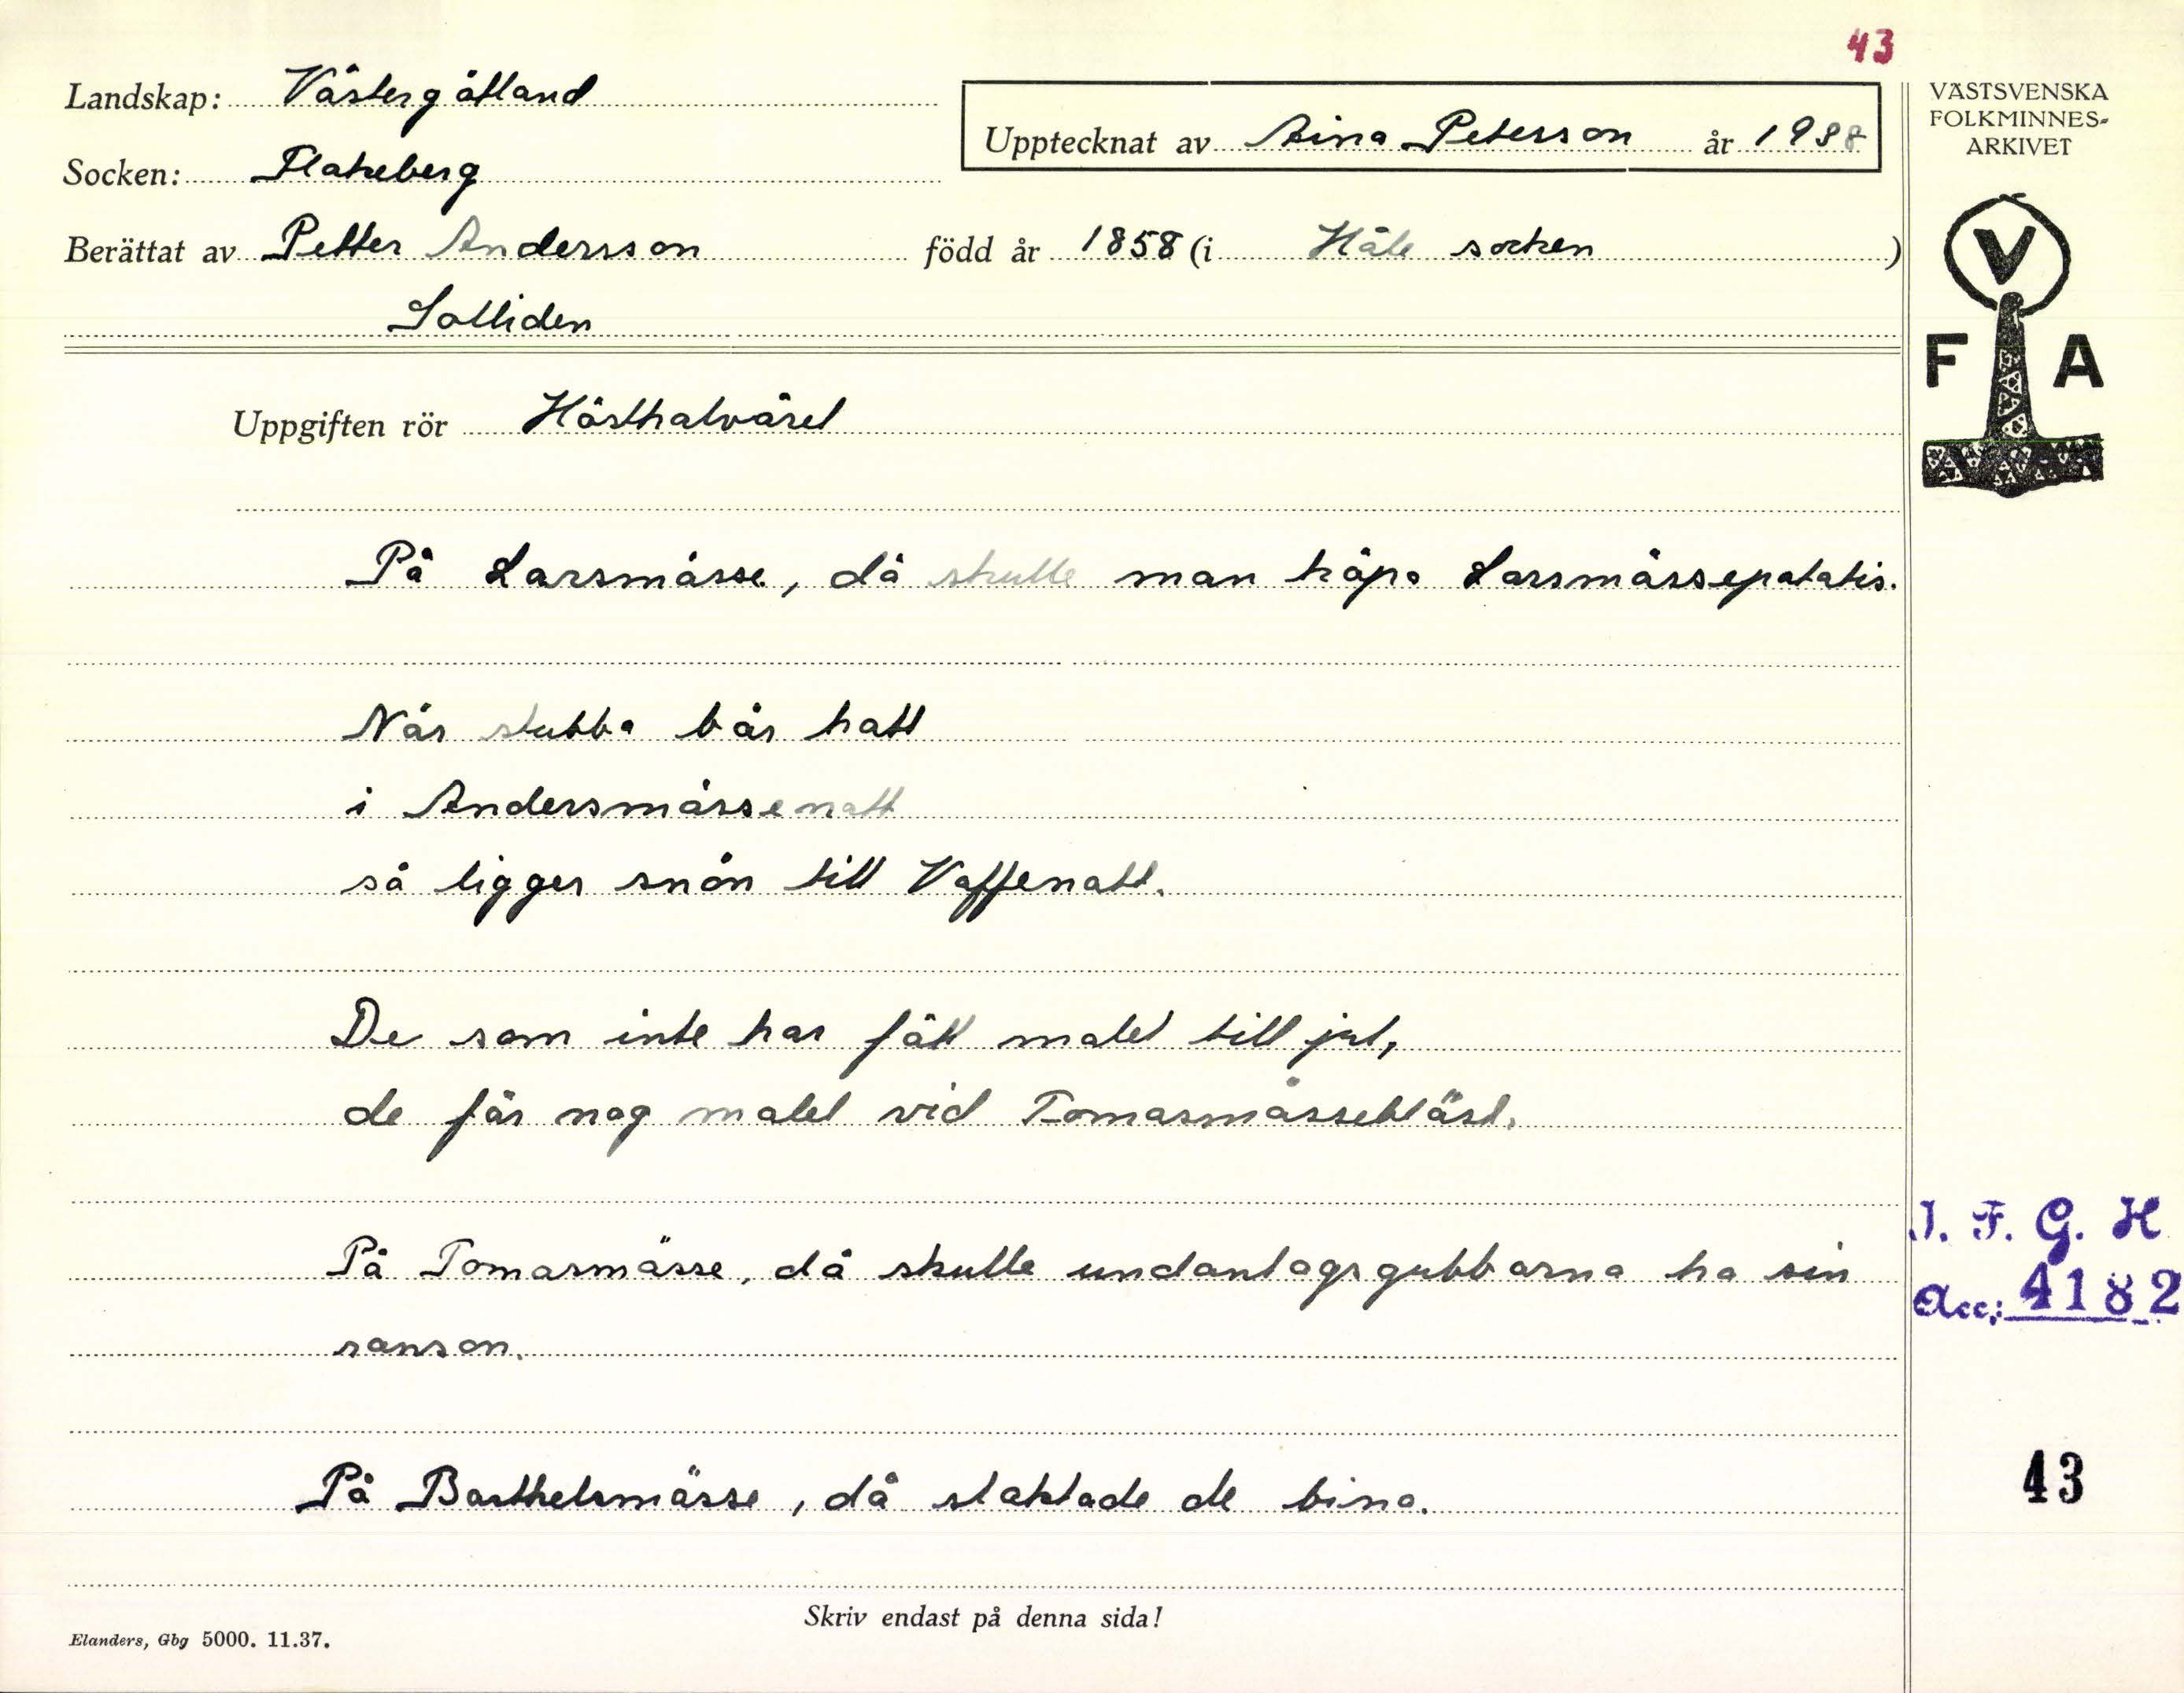 43
Landskap: Västergötland
VÄSTSVENSKA
FOLKMINNES-
ARKIVET
Upptecknat av Aina Peterson år 1938
Socken: Flakeberg
Berättat av Petter Andersson född år 1858 (i Häle socken )
Solliden
V
F A
Uppgiften rör Hösthalvåret
På Larsmässe, då skulle man köpa Larsmässepotatis.
När stubba bär hatt
i Andersmässenatt
så ligger snön till Vaffenatt.
De som inte har fått malet till jul,
de får nog malet vid Tomasmässeblåst.
På Tomasmässe, då skulle undantagsgubbarna ha sin
ranson.
I. F. G. H
Acc: 4182
På Barthelsmässe, då slaktade de bina.
43
Skriv endast på denna sida!
Elanders, Gbg 5000. 11.37.